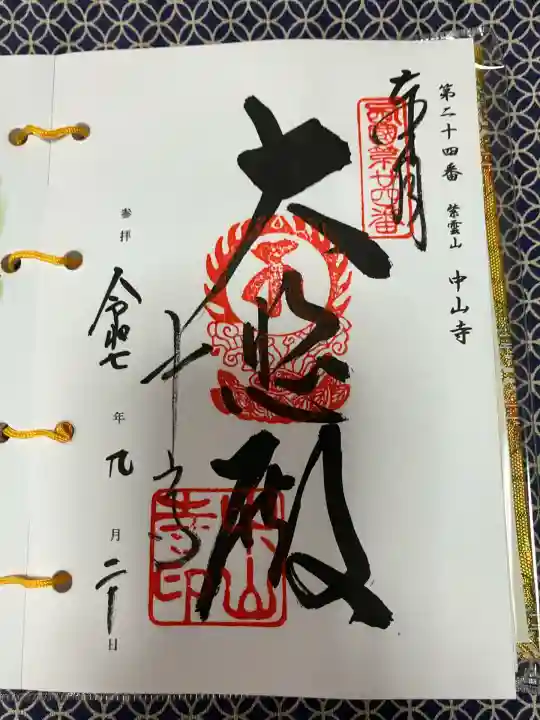 第二十四番 紫雲山 中山寺
奉拝
西國第廿四番
大悲殿
中山寺
中山寺印
参拝 令和七年九月二十日